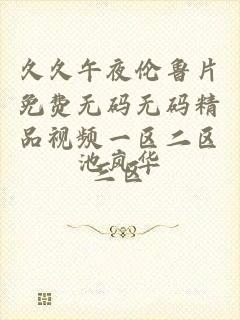 久久午夜伦鲁片
免费无码无码精
品视频一区二区
三区
池岚华